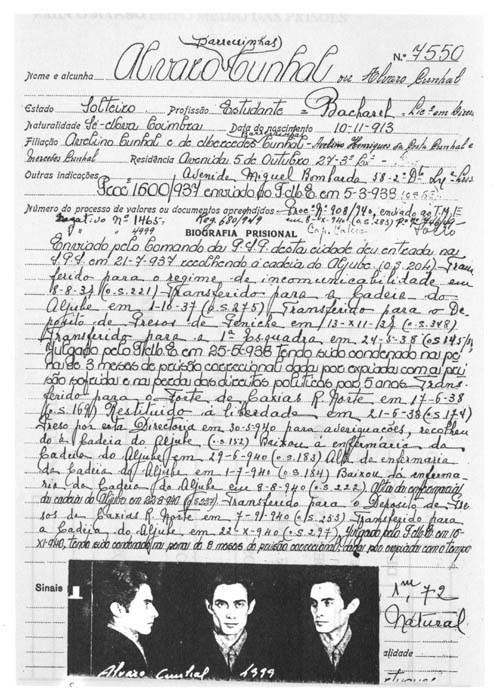 (Parrecinhas)
N.º 7550
Alvaro Cunhal
Nome e alcunha ou Alvaro Cunhal
Estado Solteiro Profissão Estudante = Bacharel
Naturalidade Sé-Nova Coimbra Data do nascimento 10-11-913
Filiação Avelino Cunhal e de Mercedes Cunhal - Avelino Henriques da Costa Cunhal e
Mercedes Cunhal Residência Avenida 5 de Outubro 27-3º
Outras indicações Avenida Miguel Bombarda 58-2º Dto
Procº 1600/937 enviado ao T.M.E. em 5-3-938
Número do processo de valores ou documentos apreendidos Procº Nº 908/940, enviado ao T.M.E
Negativo Nº 1465 Reg. 680/949
" " 4999
BIOGRAFIA PRISIONAL
Enviado pelo Comando da P.S.P. desta cidade deu entrada na
S.P.S. em 21-7-937 recolhendo à cadeia do Aljube (o.s. 204) Trans
ferido para o regime de incomunicabilidade em
8-8-37 (o.s. 221) Transferido para a Cadeia do
Aljube em 1-10-37 (o.s. 275) Transferido para o De
pósito de Presos de Peniche em 13-XII-37 (o.s. 348)
Transferido para a 1ª Esquadra em 24-5-38 (o.s. 145/
Julgado pelo T.M.E. em 25-5-938 tendo sido condenado na pe
na de 3 meses de prisão correccional dada por expiada com a pri
são sofrida e na perda dos direitos políticos por 5 anos Trans-
ferido para o Forte de Caxias R. Norte em 17-6-38
(o.s. 169) Restituído à liberdade em 21-6-38 (o.s. 174)
Preso por esta Directoria em 30-5-940 para averiguações, recolheu
do à Cadeia do Aljube (o.s. 152) Baixou à enfermaria da
Cadeia do Aljube em 29-6-940 (o.s. 183) Alta da enfermaria
da Cadeia do Aljube em 1-7-940 (o.s. 184) Baixou da enferma-
ria da Cadeia do Aljube em 8-8-940 (o.s. 222) Alta da enfermaria
da cadeia do Aljube em 23-8-940 (o.s. 237) Transferido para o Depósito de Pre
sos de Caxias R. Norte em 7-9-940 (o.s. 253) Transferido para
a Cadeia do Aljube em 22-X-940 (o.s. 297) Julgado pelo T.M.E. em 10-
XI-940, tendo sido condenado na pena de 8 meses de prisão correccional, dada por expiada com o tempo
Sinais
1m,72
Natural
alidade
Alvaro Cunhal 4999